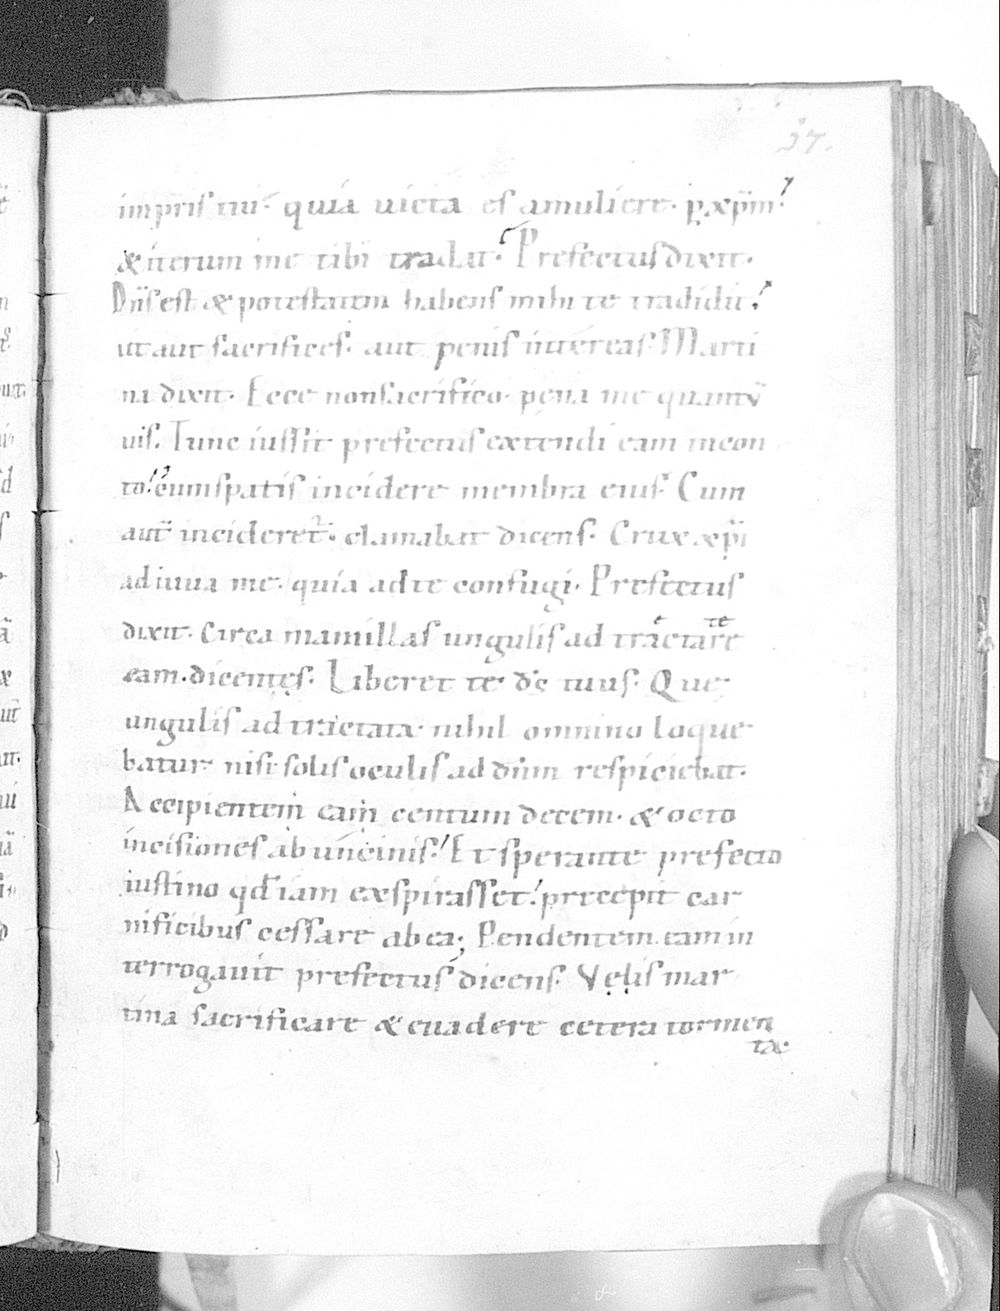 37.
imp̄ris tui. quia uicta es amuliere. ꝑ xp̄m
& iterum me tibi tradat. Prefectus dixit.
Dn̄s est & potestatem habens mihi te tradidit.
ut aut sacrifices. aut penis intereas. Marti
na dixit. Ecce non sacrifico. pena me quantū
uis. Tunc iussit prefectus extendi eam incon
to. & cum spatis incidere membra eius. Cum
aut̄ incideret. clamabat dicens. Crux xp̄i
adiuua me. quia ad te confugi. Prefectus
dixit. Circa mamillas ungulis ad tractare
eam. dicentes. Liberet te ds̄ tuus. Que
ungulis ad tractata nihil omnino loque
batur nisi solis oculis ad dn̄m respiciebat.
Accipientem eam centum decem. & octo
incisiones ab uncinis. Et sperante prefecto
iustino qd̄ iam exspirasset. precepit car
nificibus cessare ab ea; Pendentem eam in
terrogauit prefectus dicens. Velis mar
tina sacrificare & euadere cetera tormen
ta